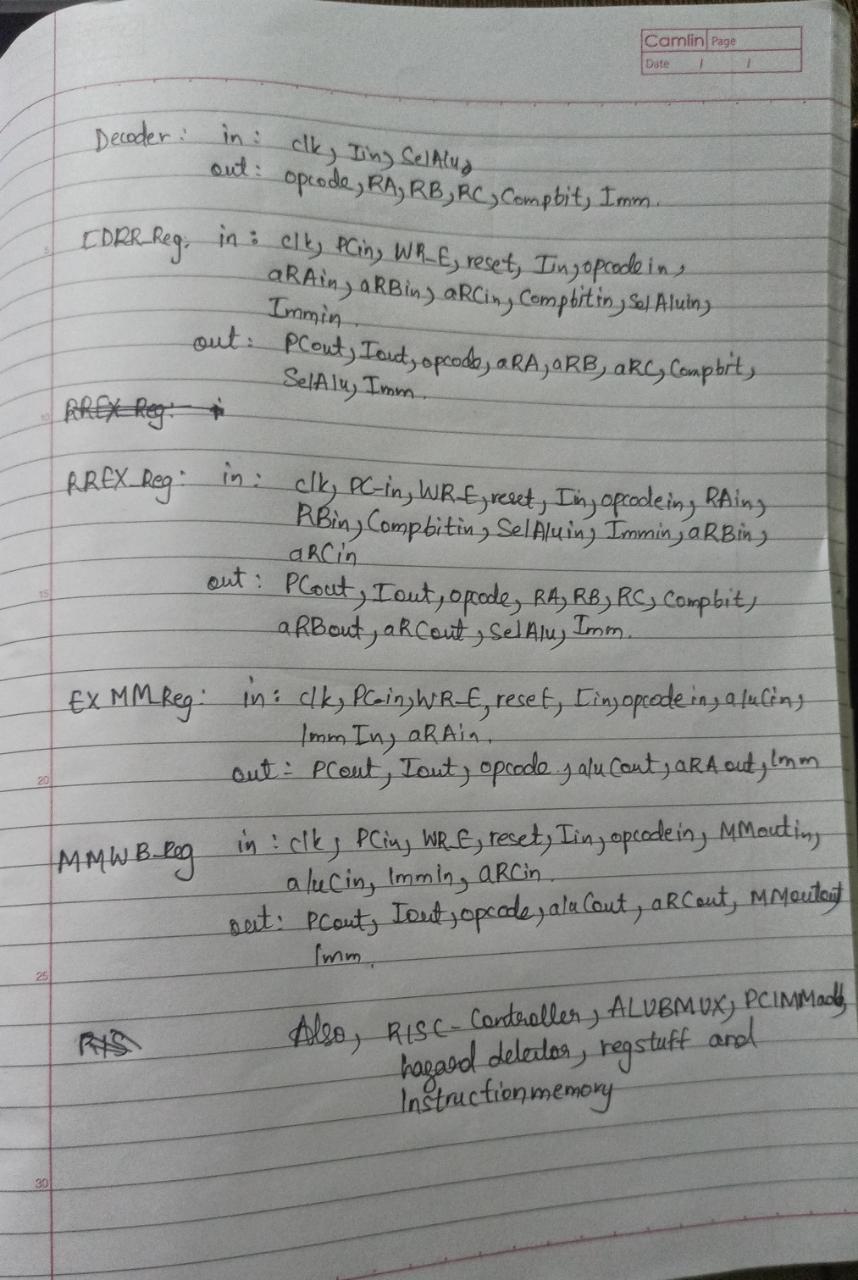 Camlin Page
Date / /
Decoder: in: clk, Iin, SelAlu,
out: opcode, RA, RB, RC, Compbit, Imm.
IDRR_Reg. in: clk, PCin, WR_E, reset, Iin, opcodein,
aRAin, aRBin, aRCin, Compbitin, SelAluin,
Immin.
out: PCout, Iout, opcode, aRA, aRB, aRC, Compbit,
SelAlu, Imm.
RREX Reg: - i
RREX_Reg: in: clk, PC-in, WR_E, reset, Iin, opcodein, RAin,
RBin, Compbitin, SelAluin, Immin, aRBin,
aRCin
out: PCout, Iout, opcode, RA, RB, RC, Compbit,
aRBout, aRCout, SelAlu, Imm.
EXMM_Reg: in: clk, PC-in, WR_E, reset, Iin, opcodein, aluCin,
Imm In, aRAin.
out: PCout, Iout, opcode, aluCout, aRAout, Imm
MMWB_Reg in: clk, PCin, WR_E, reset, Iin, opcodein, MMoutin,
aluCin, Immin, aRCin.
out: PCout, Iout, opcode, aluCout, aRCout, MMoutout
Imm.
RIS Also, RISC-Controller, ALUBMUX, PCIMMadd,
hazard detector, regstuff and
Instructionmemory
5
10
15
20
25
30